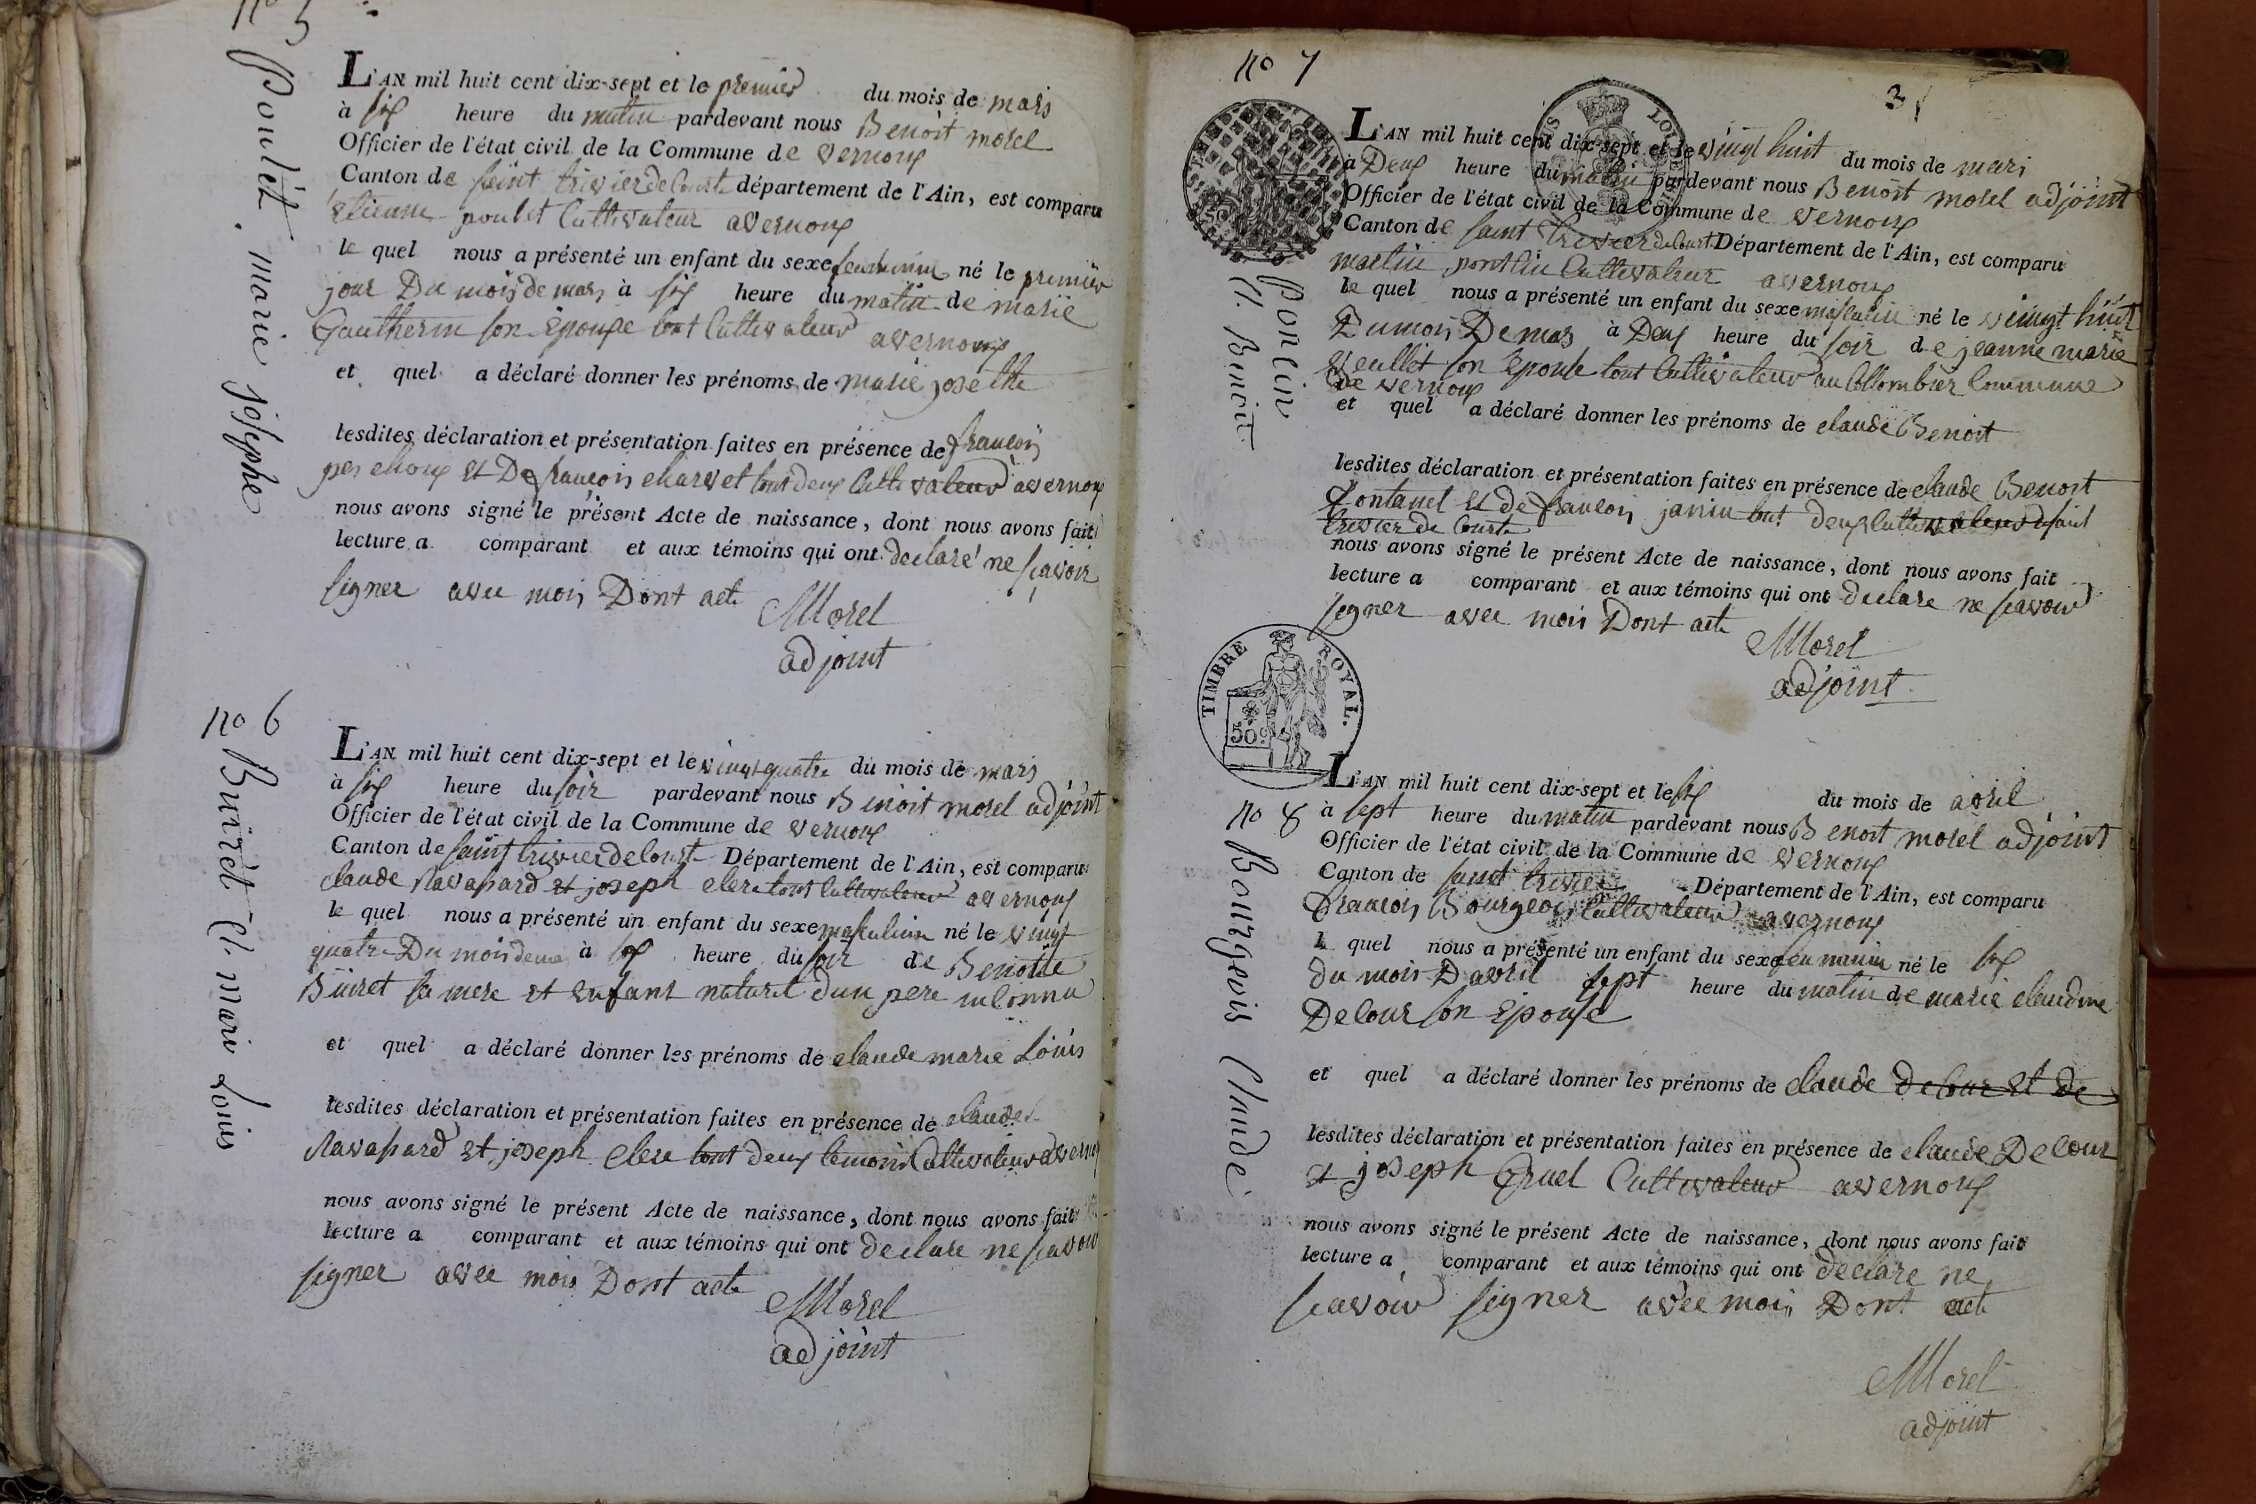 no 5
Poulet marie josephe
L'AN mil huit cent dix-sept et le premier du mois de mars
à six heure du matin pardevant nous Benoit morel
Officier de l'état civil de la Commune de vernoux
Canton de saint trivier de Courte département de l'Ain, est comparu
etienne poulet Cultivateur a vernoux
le quel nous a présenté un enfant du sexe feminin né le premier
jour Du mois de mars à six heure du matin de marie
Gautherin son Epouse tout Cultivateur a vernoux
et quel a déclaré donner les prénoms de marie josethe
lesdites déclaration et présentation faites en présence de françois
pechoux et De françois charvet tout deux Cultivateur a vernoux
nous avons signé le présent Acte de naissance, dont nous avons fait
lecture a comparant et aux témoins qui ont declaré ne scavoir
signer avec mois Dont acte
Morel
adjoint
no 6
Buiret Cl. marie Louis
L'AN mil huit cent dix-sept et le vingt quatre du mois de mars
à six heure du soir pardevant nous Benoit morel adjoint
Officier de l'état civil de la Commune de vernoux
Canton de saint trivier de Courte Département de l'Ain, est comparu
claude Ravassard et joseph clerc tout Cultivateur a vernoux
le quel nous a présenté un enfant du sexe masculin né le vingt
quatre Du mois de mars à six heure du soir de Benoite
Buiret sa mere et enfant naturel d'un pere inconnu
et quel a déclaré donner les prénoms de claude marie Louis
lesdites déclaration et présentation faites en présence de claude
Ravassard et joseph clerc tout deux temoins Cultivateur a vernoux
nous avons signé le présent Acte de naissance, dont nous avons fait
lecture a comparant et aux témoins qui ont declare ne scavoir
signer avec mois Dont acte
Morel
adjoint
no 7
3
TIMBRE ROYAL.
50c
Poncin Cl. Benoit
L'AN mil huit cent dix-sept et le vingt huit du mois de mars
à Deux heure du matin pardevant nous Benoit morel adjoint
Officier de l'état civil de la Commune de vernoux
Canton de saint trivier de Court Département de l'Ain, est comparu
martin pontin Cultivateur a vernoux
le quel nous a présenté un enfant du sexe masculin né le vingt huit
Du mois De mars à Deux heure du soir de jeanne marie
veullet son Epouse tout Cultivateur au Collombier Commune
de vernoux
et quel a déclaré donner les prénoms de claude Benoit
lesdites déclaration et présentation faites en présence de claude Benoit
fontanel et de françois janin tout deux Cultivateur a saint
trivier de Courte
nous avons signé le présent Acte de naissance, dont nous avons fait
lecture a comparant et aux témoins qui ont declare ne scavoir
signer avec mois Dont acte
Morel
adjoint
no 8
Bourgeois Claude
L'AN mil huit cent dix-sept et le six du mois de avril
à sept heure du matin pardevant nous Benoit morel adjoint
Officier de l'état civil de la Commune de vernoux
Canton de saint trivier Département de l'Ain, est comparu
françois Bourgeois Cultivateur a vernoux
l quel nous a présenté un enfant du sexe feminin né le six
du mois D'avril sept heure du matin de marie claudine
Decour son Epouse
et quel a déclaré donner les prénoms de claude decour et de
lesdites déclaration et présentation faites en présence de claude Decour
et joseph Gruel Cultivateur a vernoux
nous avons signé le présent Acte de naissance, dont nous avons fait
lecture a comparant et aux témoins qui ont declare ne
scavoir signer avec mois Dont acte
Morel
adjoint